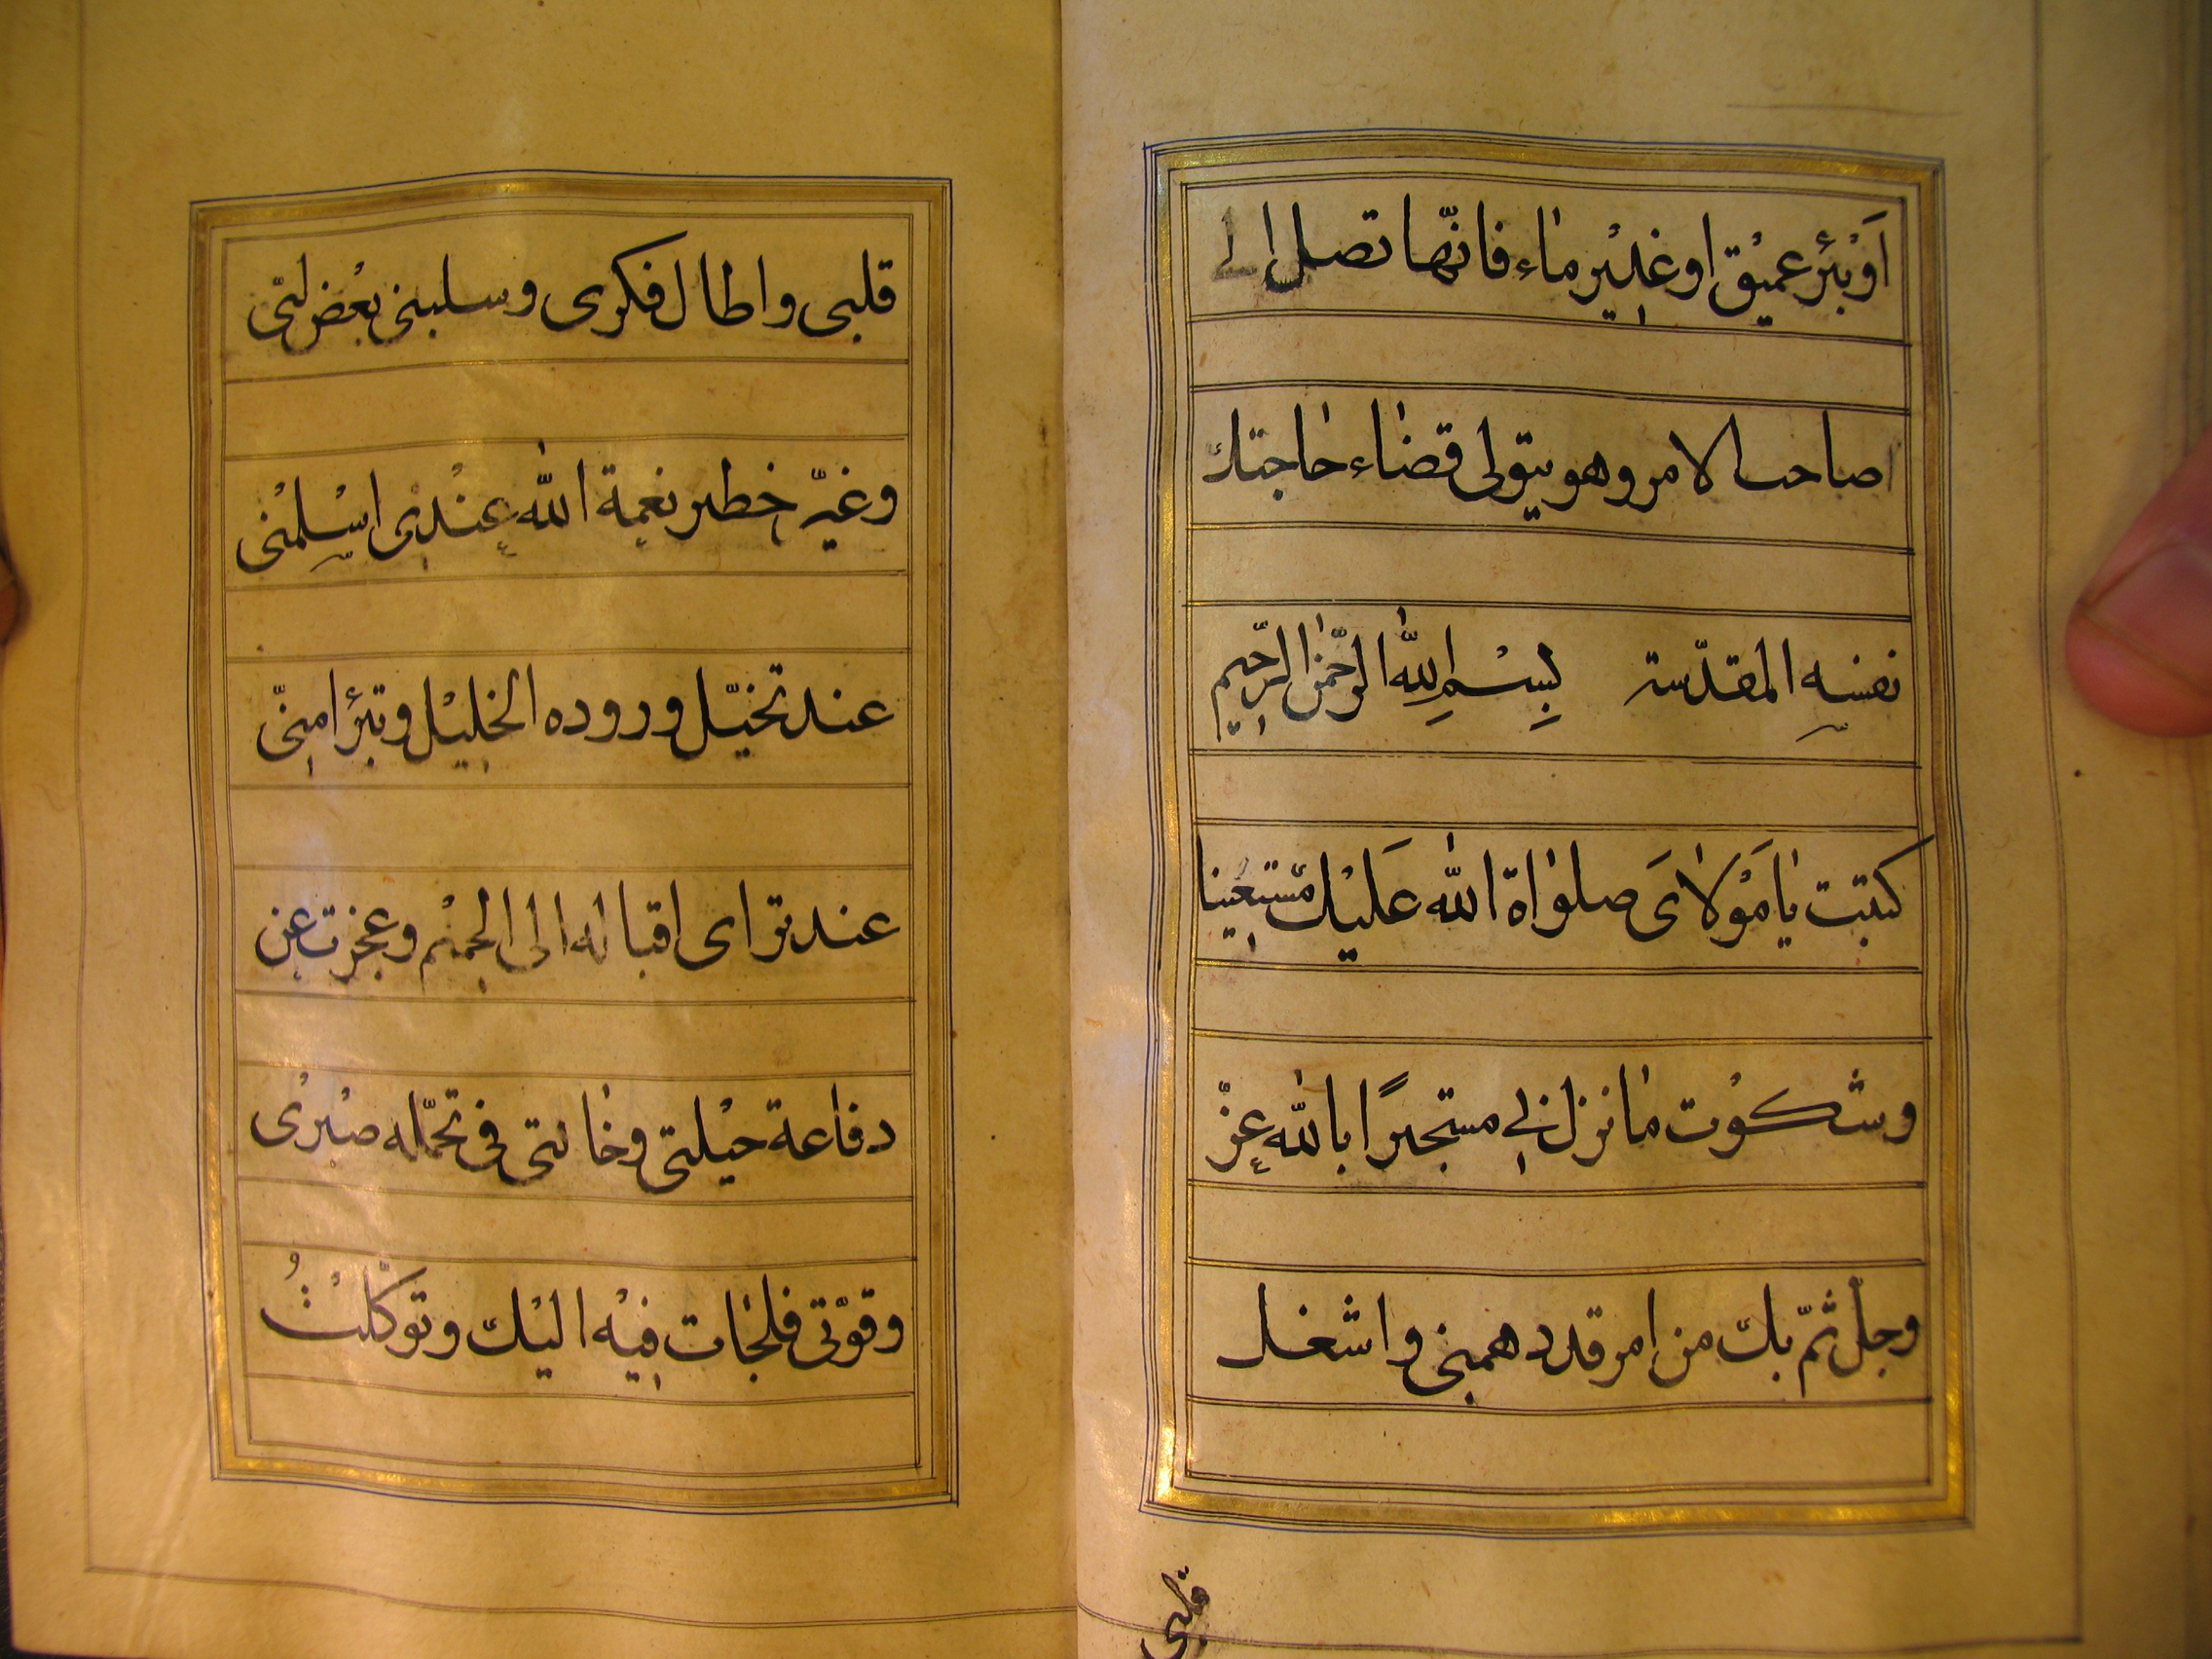 اَوْ بئرٍ عميْق او غدِيْر ماء فانّها تصل الى
صاحب الامر وهو يتولى قضاء حاجتك
نفسه المقدّسة بِسْمِ اللّٰه الرّحمٰن الرّحِيم
كتبت يا مَوْلايَ صلواة اللّٰه عَليْك مستغيثا
وشكوْت ما نزل بِي مستجيرًا باللّٰه عزّ
وجلّ ثمّ بك من امر قد دهمنى واشغل
قلبى
قلبى واطال فكرى وسلبنى بعْض لبّى
وغيّر خطير نعمة اللّٰه عِنْدِى اسْلمْنى
عند تخيّل وروده الخليْل وتبرّا منّى
عند تراى اقباله الى الحميْم وعجزت عن
دفاعه حيْلتى وخاننى فى تحمّله صبْرى
وقوّتى فلجات فيْه اليْك وتوكّلْتُ